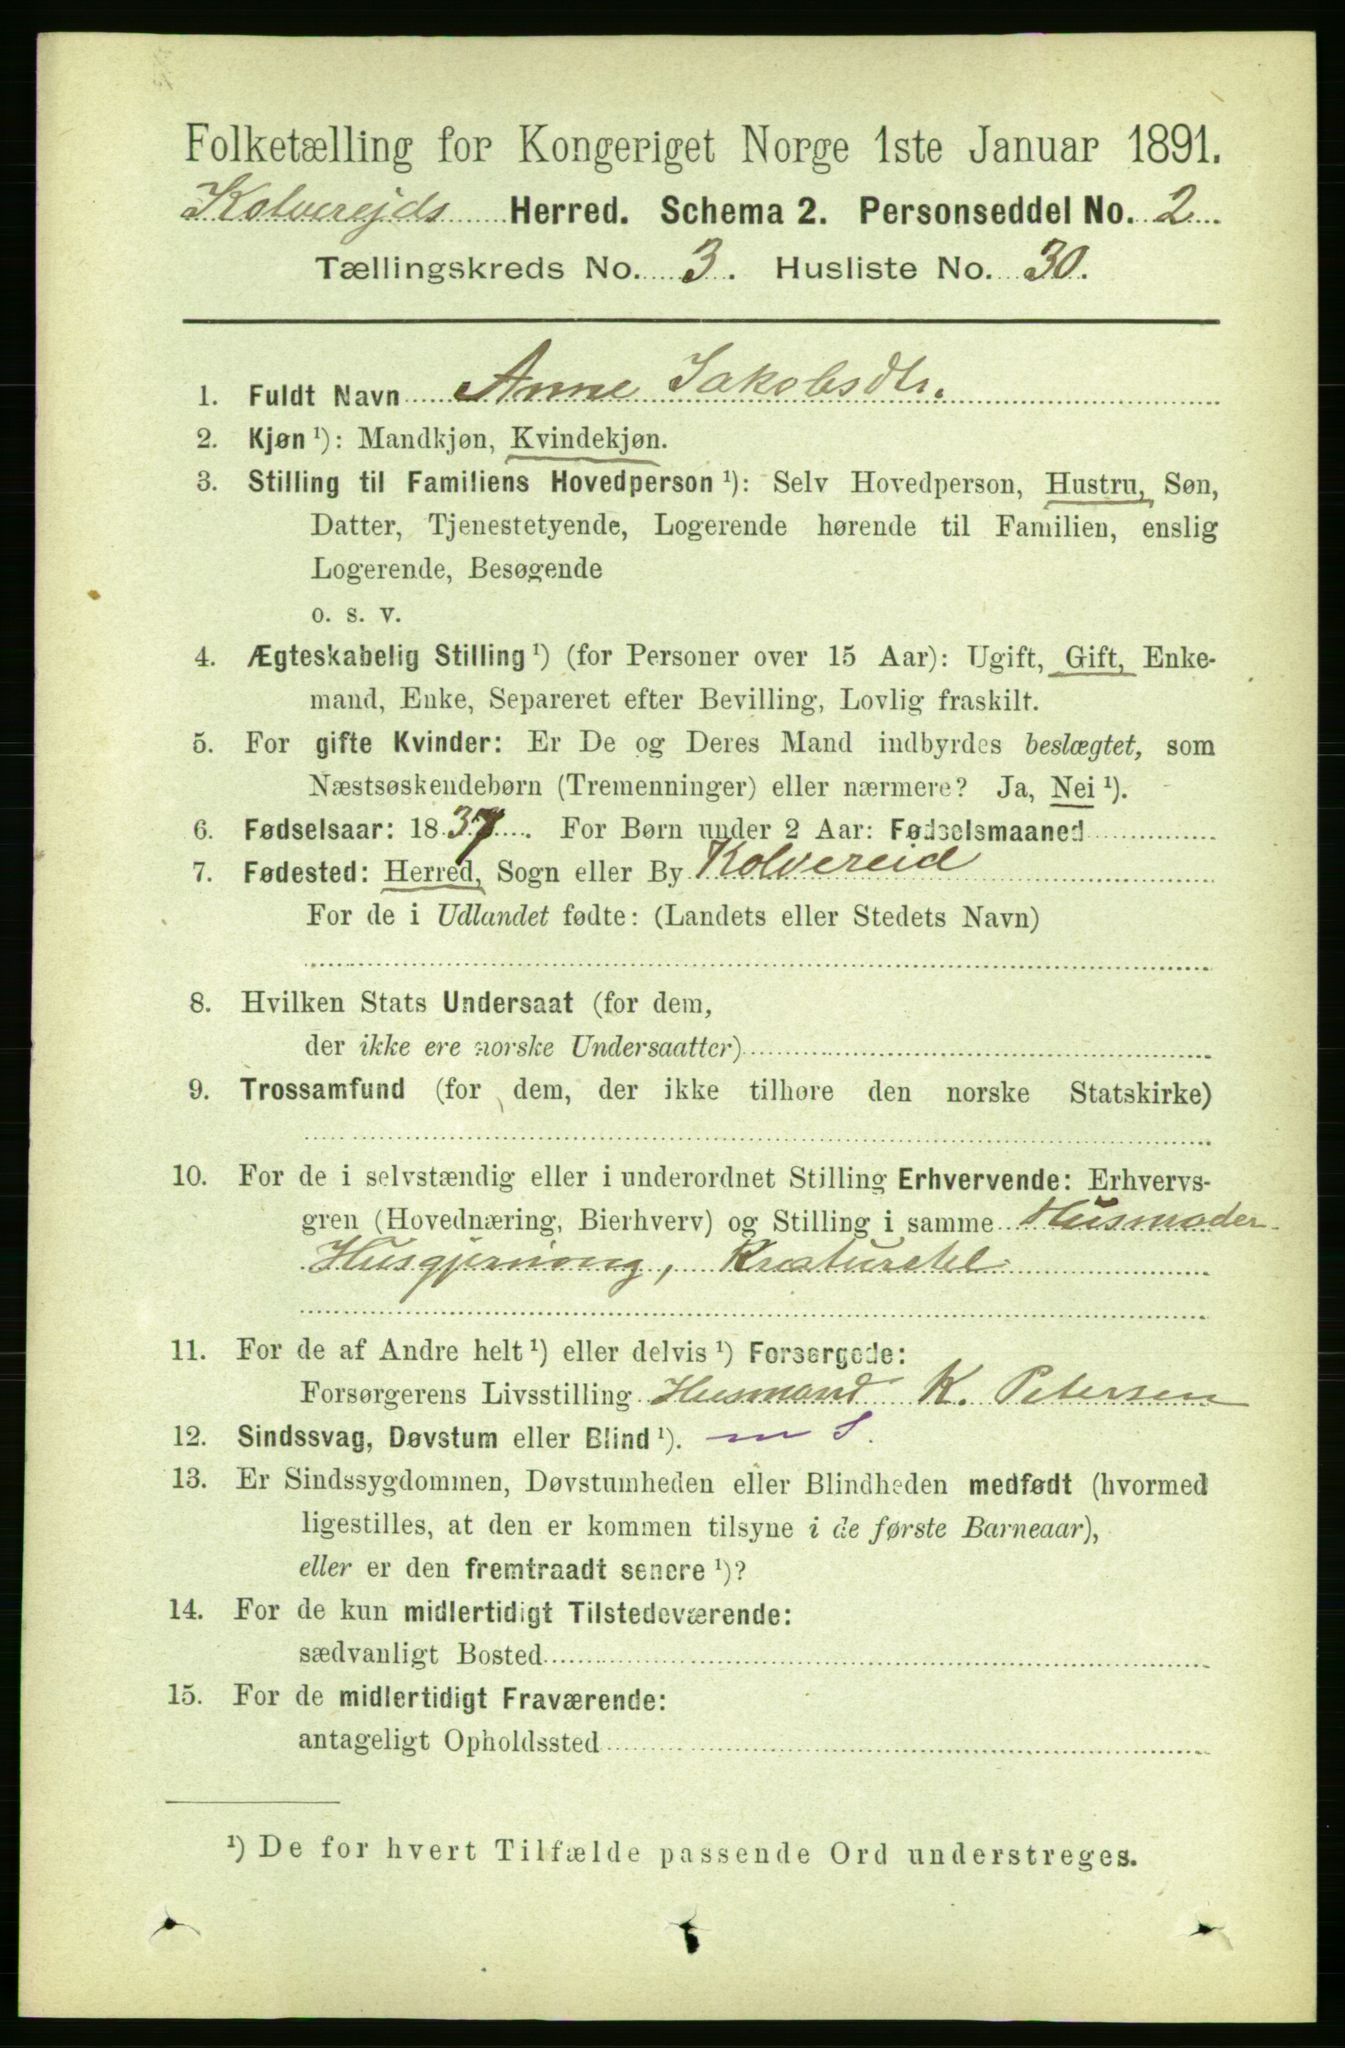 Folketælling for Kongeriget Norge 1ste Januar 1891.
Kolverejds Herred. Schema 2. Personseddel No. 2
Tællingskreds No. 3. Husliste No. 30.
1. Fuldt Navn Anne Jakobsdtr.
2. Kjøn ¹): Mandkjøn, Kvindekjøn.
3. Stilling til Familiens Hovedperson ¹): Selv Hovedperson, Hustru, Søn,
Datter, Tjenestetyende, Logerende hørende til Familien, enslig
Logerende, Besøgende
o. s. v.
4. Ægteskabelig Stilling ¹) (for Personer over 15 Aar): Ugift, Gift, Enke-
mand, Enke, Separeret efter Bevilling, Lovlig fraskilt.
5. For gifte Kvinder: Er De og Deres Mand indbyrdes beslægtet, som
Næstsøskendebørn (Tremenninger) eller nærmere? Ja, Nei ¹).
6. Fødselsaar: 1837. For Børn under 2 Aar: Fødselsmaaned
7. Fødested: Herred, Sogn eller By Kolvereid
For de i Udlandet fødte: (Landets eller Stedets Navn)
8. Hvilken Stats Undersaat (for dem,
der ikke ere norske Undersaatter)
9. Trossamfund (for dem, der ikke tilhøre den norske Statskirke)
10. For de i selvstændig eller i underordnet Stilling Erhvervende: Erhvervs-
gren (Hovednæring, Bierhverv) og Stilling i samme Husmoder
Husgjerning, Kreaturstel
11. For de af Andre helt ¹) eller delvis ¹) Forsørgede:
Forsørgerens Livsstilling Husmand K. Petersen
12. Sindssvag, Døvstum eller Blind ¹).
13. Er Sindssygdommen, Døvstumheden eller Blindheden medfødt (hvormed
ligestilles, at den er kommen tilsyne i de første Barneaar),
eller er den fremtraadt senere ¹)?
14. For de kun midlertidigt Tilstedeværende:
sædvanligt Bosted
15. For de midlertidigt Fraværende:
antageligt Opholdssted
¹) De for hvert Tilfælde passende Ord understreges.